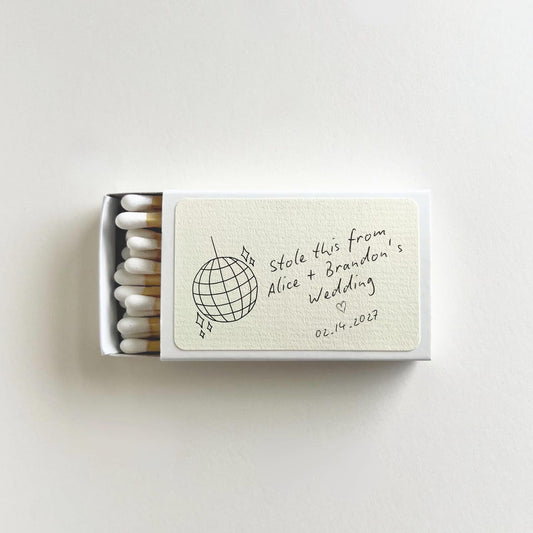 Stole this from
Alice + Brandon's
Wedding
♡
02.14.2027